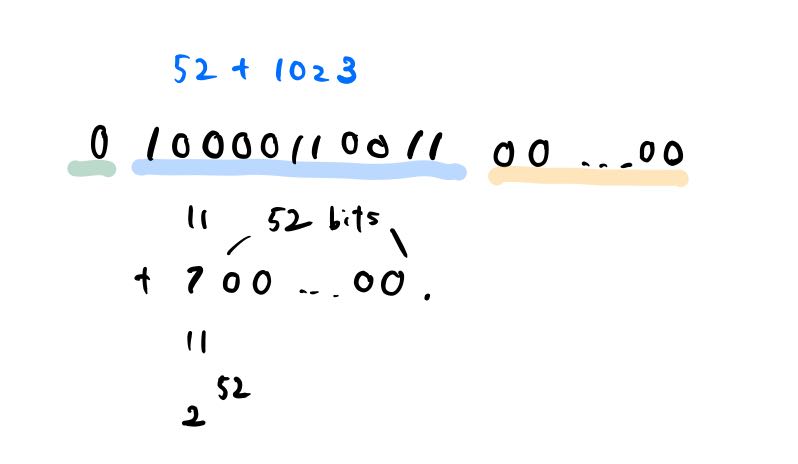 52 + 1023
0 10000110011 00 ... 00
|| 52 bits
+ 1 00 ... 00 .
||
2^52